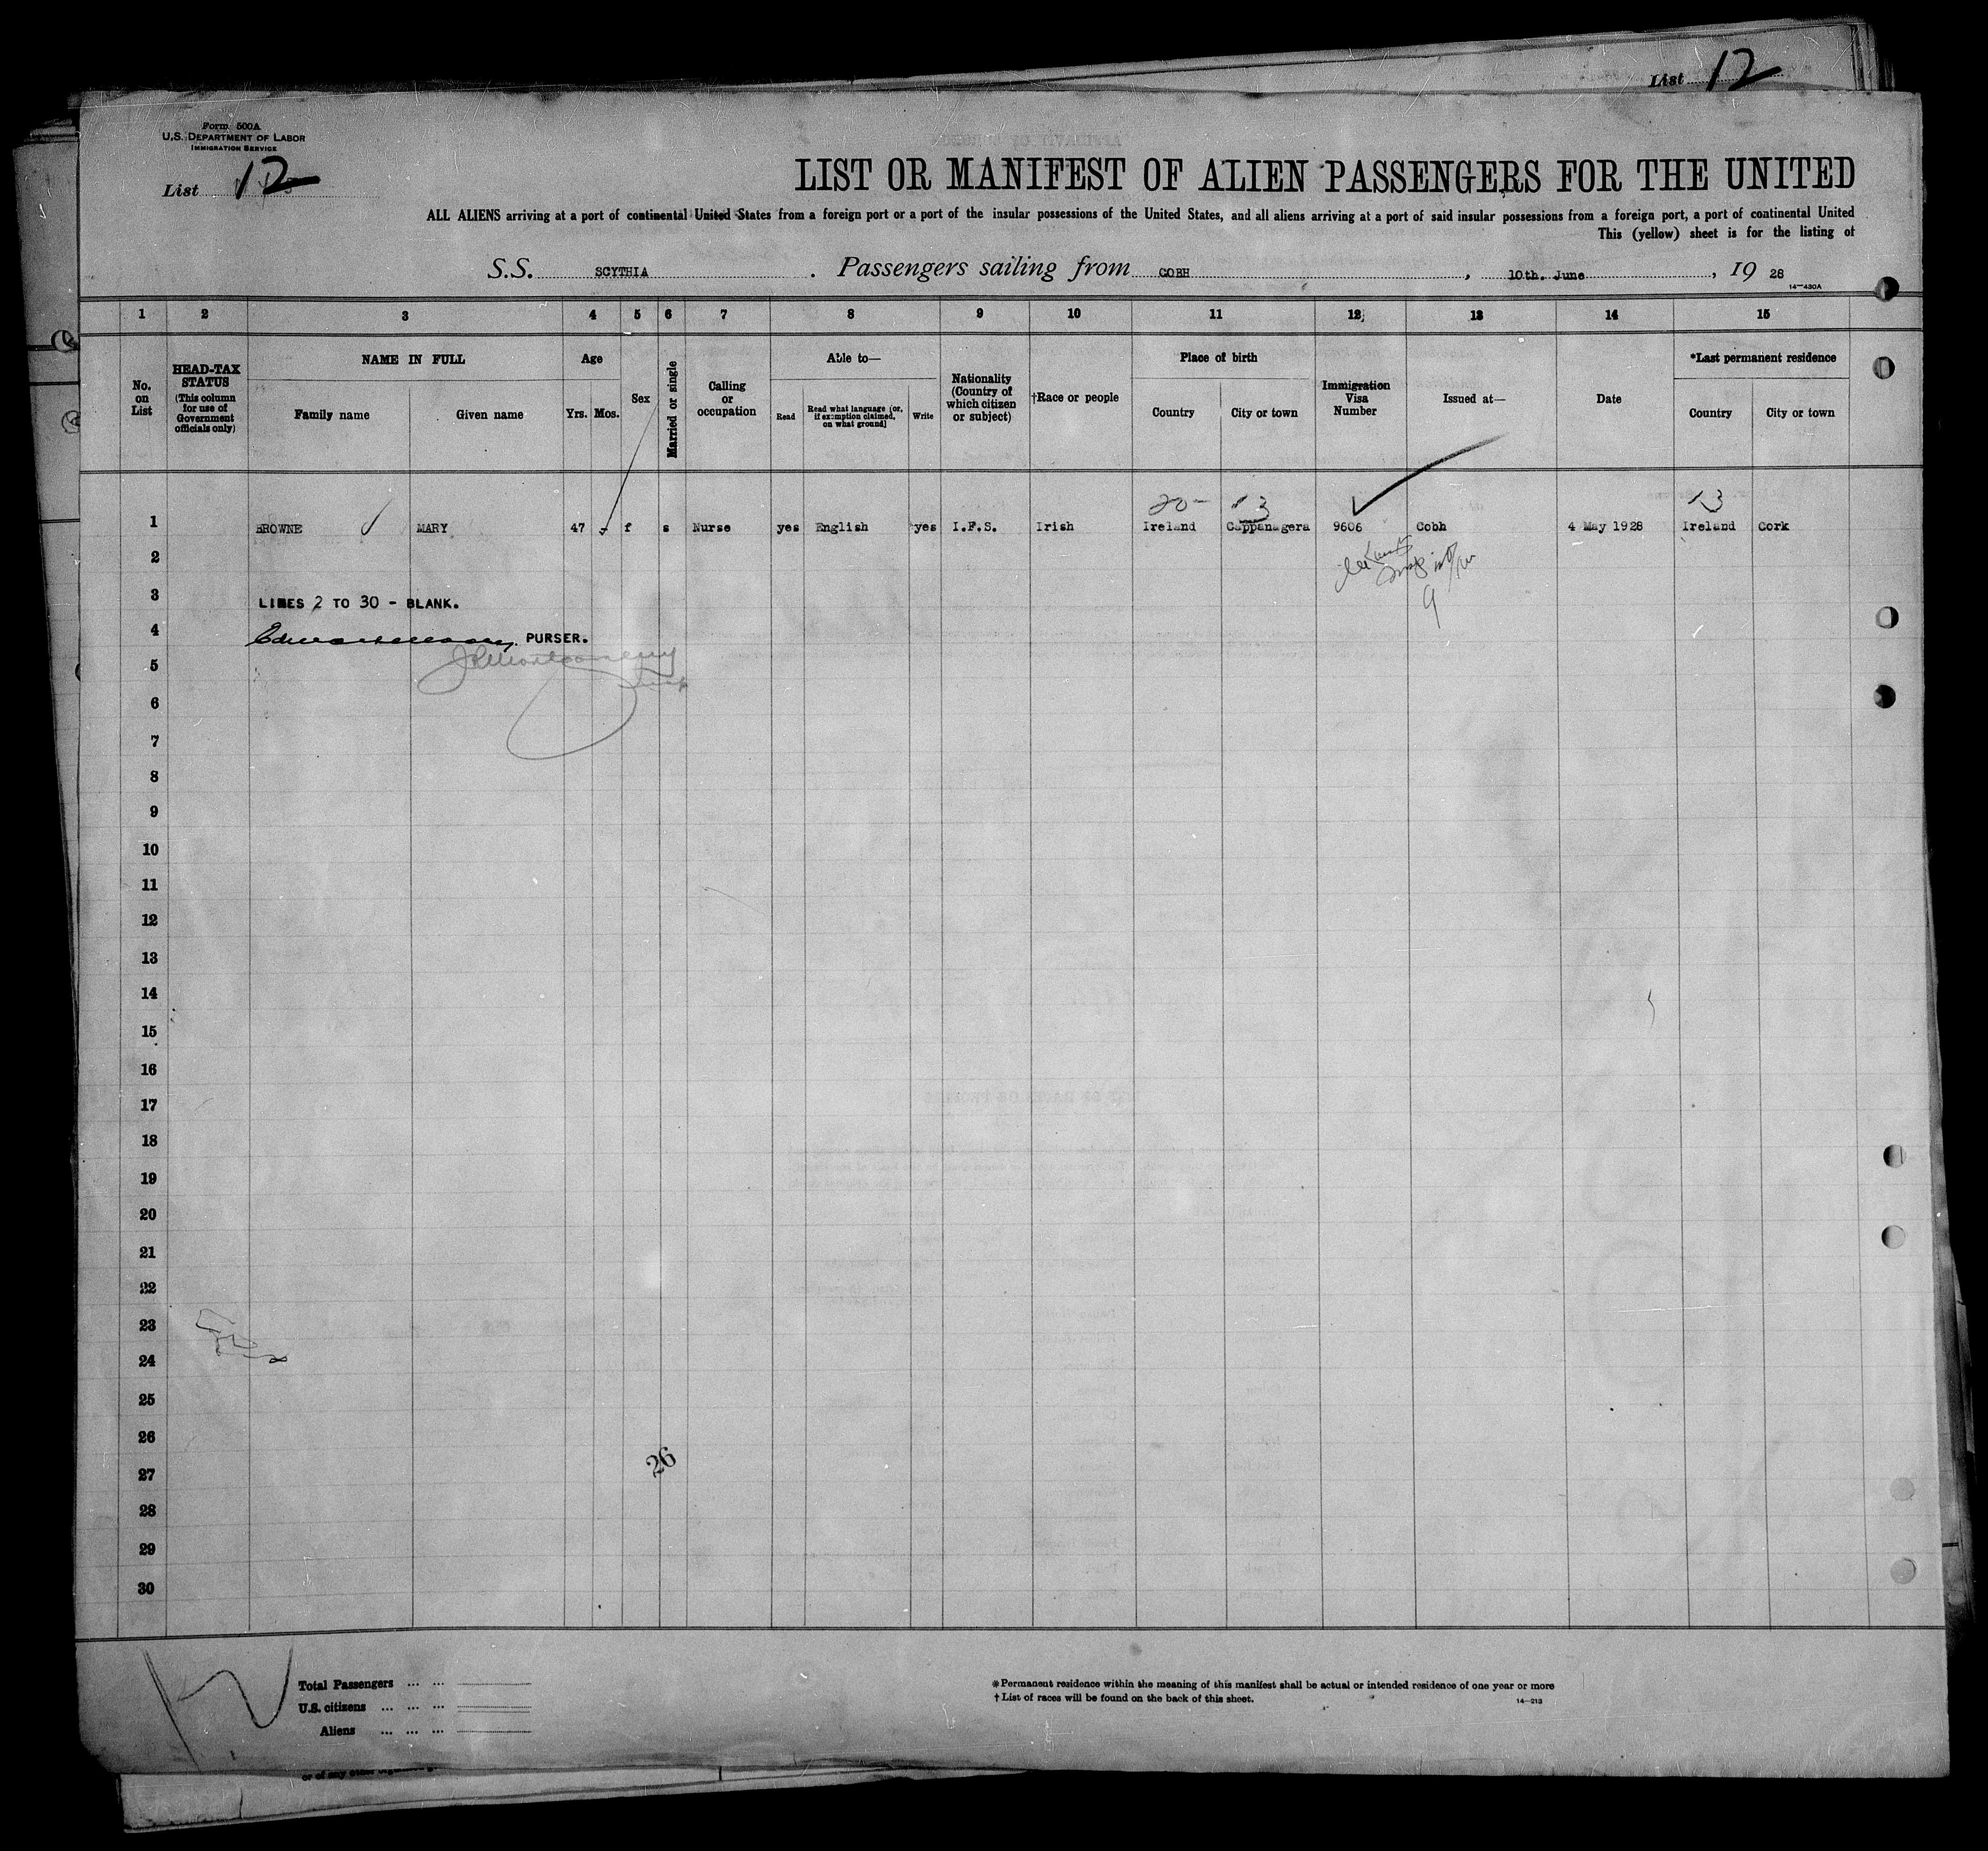 List 12
Form 500A
U.S. DEPARTMENT OF LABOR
IMMIGRATION SERVICE
List 12
LIST OR MANIFEST OF ALIEN PASSENGERS FOR THE UNITED
ALL ALIENS arriving at a port of continental United States from a foreign port or a port of the insular possessions of the United States, and all aliens arriving at a port of said insular possessions from a foreign port, a port of continental United
This (yellow) sheet is for the listing of
S.S. SCYTHIA . Passengers sailing from COBH , 10th. June , 19 28
14—430A
1 2 3 4 5 6 7 8 9 10 11 12 13 14 15
No. on List
HEAD-TAX STATUS (This column for use of Government officials only)
NAME IN FULL
Family name Given name
Age
Yrs. Mos.
Sex
Married or single
Calling or occupation
Able to—
Read
Read what language (or, if exemption claimed, on what ground)
Write
Nationality (Country of which citizen or subject)
†Race or people
Place of birth
Country City or town
Immigration Visa Number
Issued at—
Date
*Last permanent residence
Country City or town
20- 13 13
1 BROWNE MARY 47 - f s Nurse yes English yes I.F.S. Irish Ireland Cappanagera 9606 Cobh 4 May 1928 Ireland Cork
2
3 LINES 2 TO 30 - BLANK.
9
4 PURSER.
5 Montgomery
6
7
8
9
10
11
12
13
14
15
16
17
18
19
20
21
22
23
24
25
26
26
27
28
29
30
12
Total Passengers ... ...
U.S. citizens ... ... ...
Aliens ... ... ...
*Permanent residence within the meaning of this manifest shall be actual or intended residence of one year or more
†List of races will be found on the back of this sheet.
14—213
or of any other